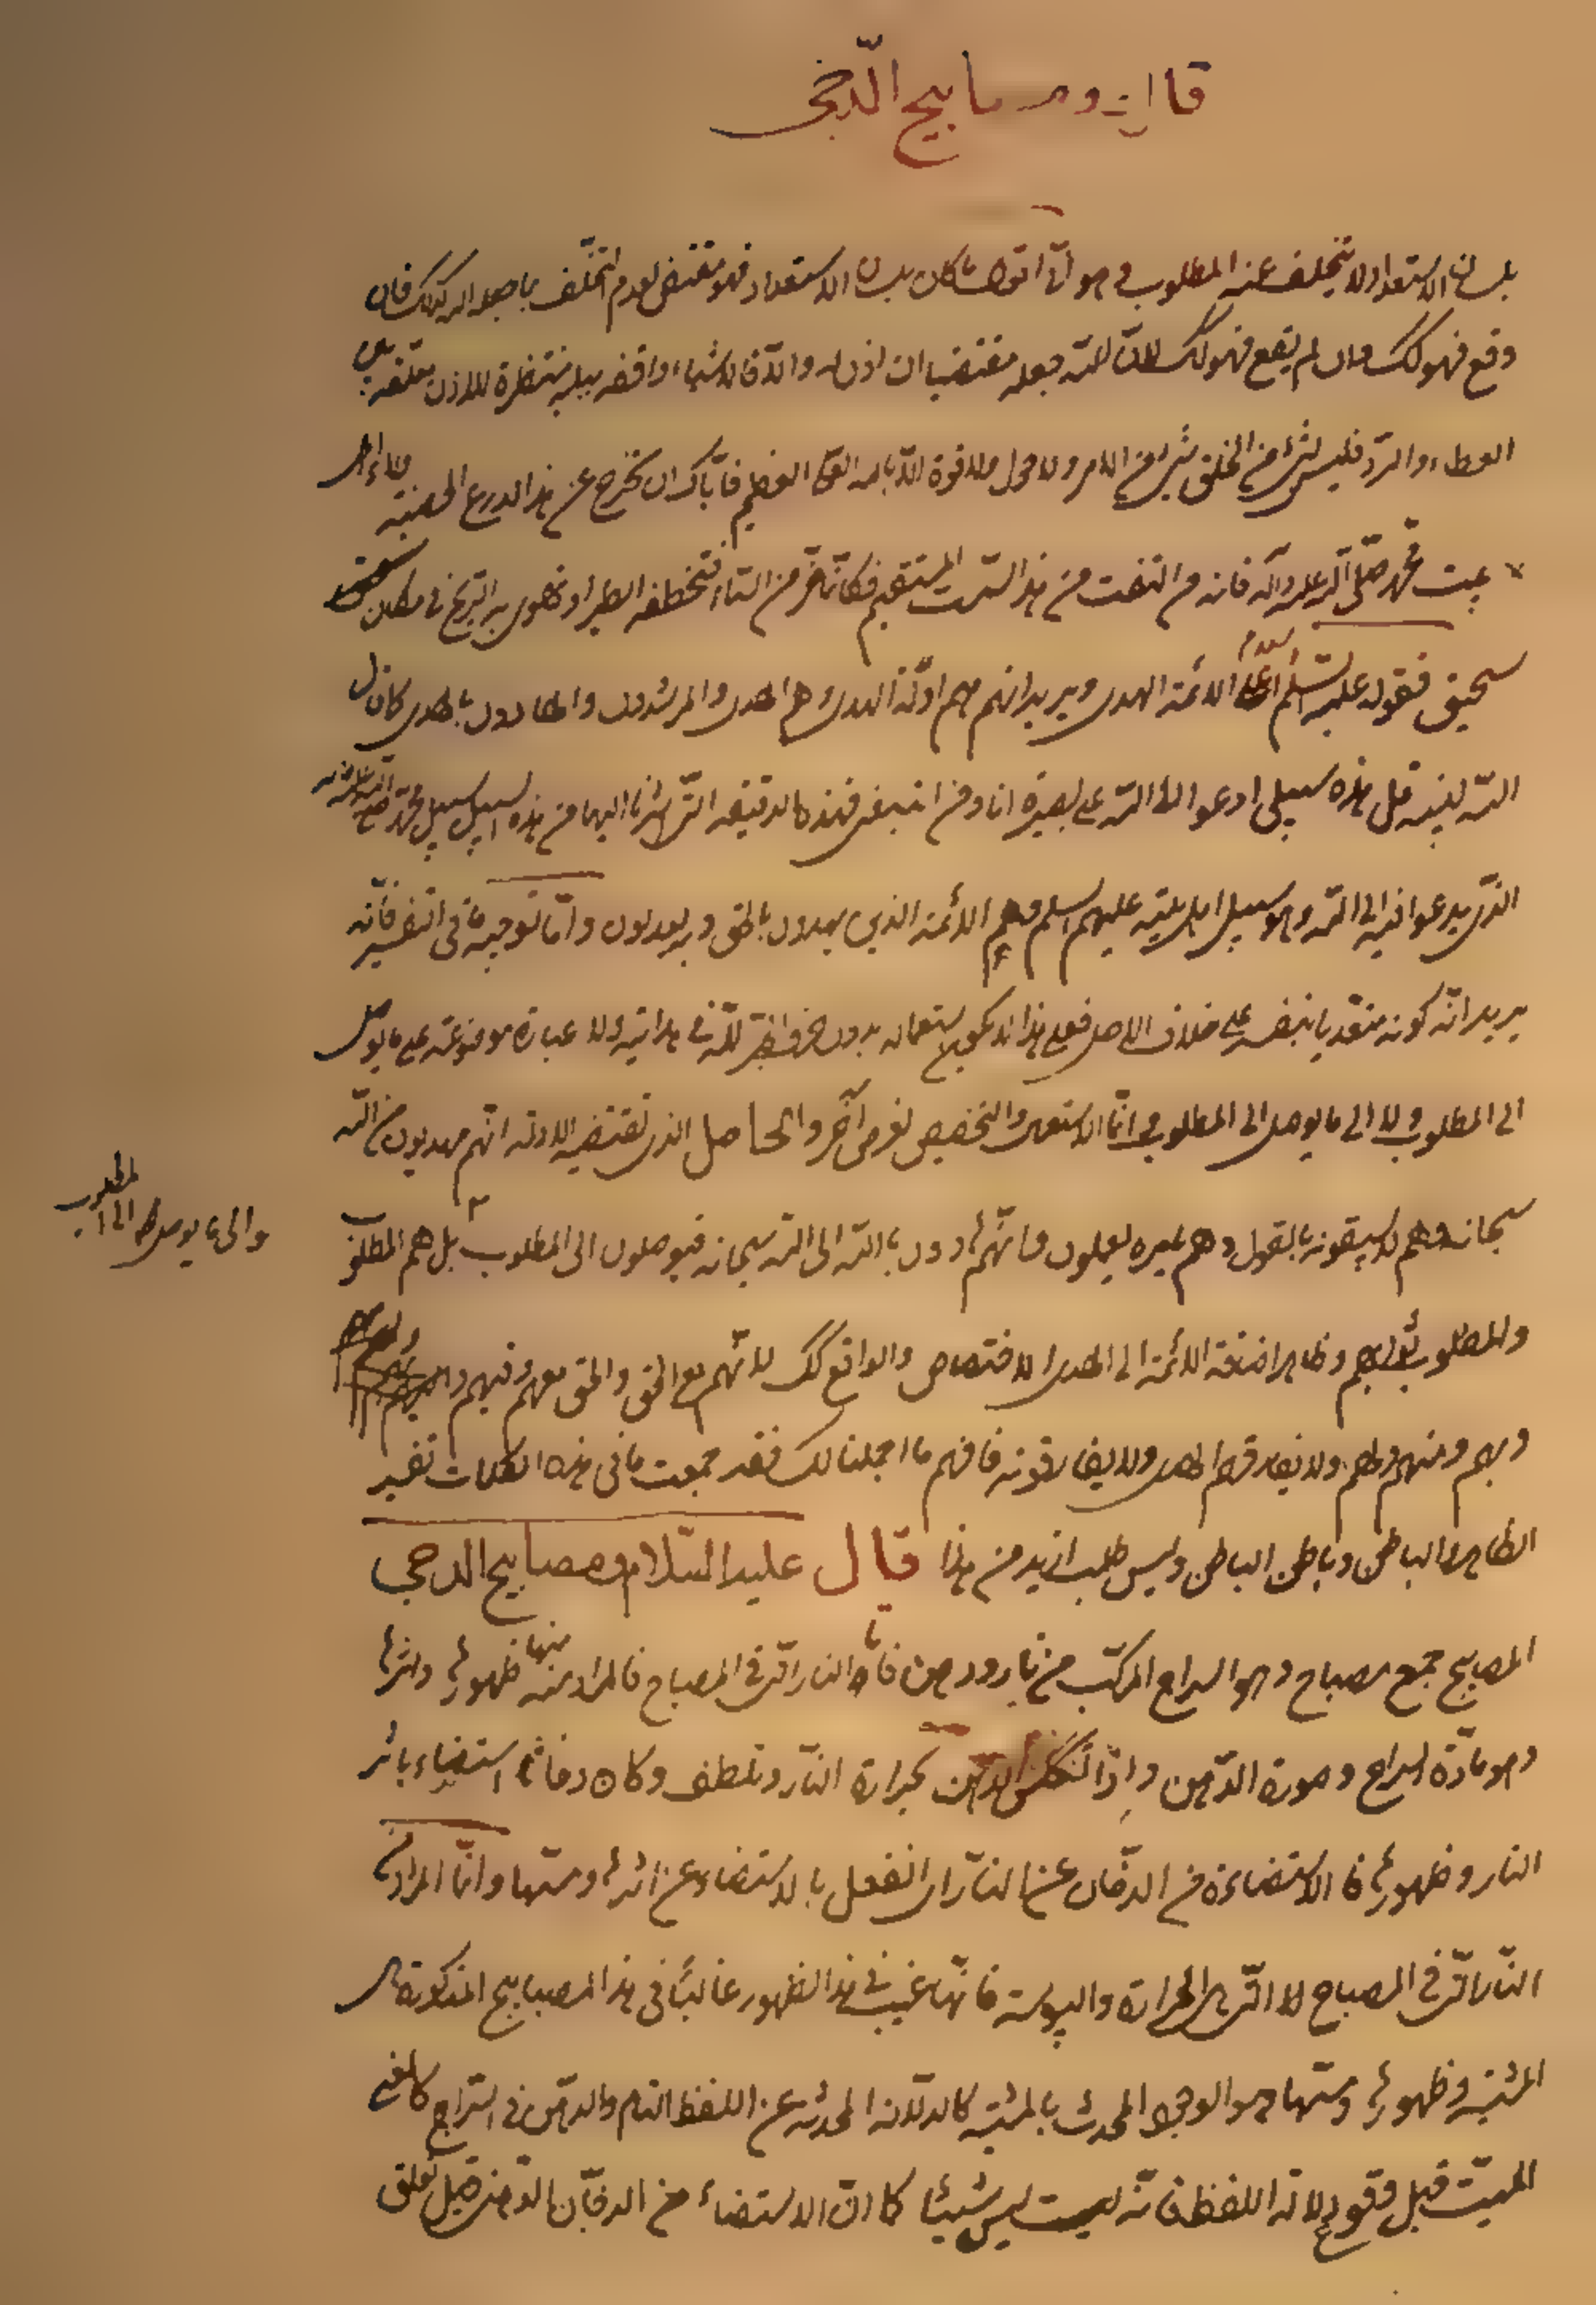 قال ومصابيح الدّجى
بلسان الاستعداد لا يتخلف عنه المطلوب وهو انّ اقول ما كان بلسان الاستعداد فهو مقتضى لعدم التخلّف بما جعله الله كذلك فان
وقع فهو كك وان لم يقع فهو كك لانّ اللّه جعله مقتضيا ان اذن له والّا فالاشياء واقفة ببابه منتظرة للاذن متعلقة
العطاء والردّ فليس لشئ من الخلق شئ من الامر ولا حول ولا قوة الّا بالله العلى العظيم فايّاك ان تخرج عن هذا الدرع الحصينة ولاء اهل
بيت محمد صلّى الله عليه وآله فانه من التفت من هذا السّمت المستقيم فكانّما خرّ من السّماء فتخطفه الطير او تهوى به الرّيح فى مكان سحيق
سحيق فقوله عليه السّلم السلام على الائمة الهدى ويريد انهم هم ادلّة الهدى وهم الهدى والمرشدون والهادون بالهدى كما قال
اللّه لنبيه قل هذه سبيلى ادعو الى اللّه على بصيرة انا ومن اتبعنى فهذه الدقيقة الّتى اشرنا اليها من هذه السبيل سبيل محمّد صلّى اللّه عليه وآله
الذى يدعو فيه الى اللّه وهو سبيل اهل بيته عليهم السلم وهم الائمة الذين يهدون بالحق وبه يعدلون وامّا توجيه ما فى التفسير فانّه
يريد انّه كونه متعديا بنفسه على خلاف الاصل فعلى هذا لا يكون استعماله بدون حرف الجر للّه فى هدايته ولا عبارة موضوعة على ما يوصل
الى المطلوب ولا الى ما يوصل الى المطلوب وانّما الاستعمال والتخصيص لغرض آخر والحاصل الذى تقتضيه الادلة انّهم مهديون من اللّه
سبحانه وهم لا يسبقونه بالقول وهم بامره يعملون وانّهم هادون باللّه الى اللّه سبحانه فيوصلون الى المطلوب بل هم المطلوب
والى ما يوصل الى المطلوب
والمطلوب بهم وظاهر اضافة الائمة الى الهدى الاختصاص والواقع كك لانّهم مع الحق والحق معهم وفيهم
وبهم ومنهم ولهم ولا يفارقهم الهدى ولا يفارقونه فافهم ما اجملنا لك فقد جمعت ما فى هذه الكلمات تفسير
الظاهر والباطن وباطن الباطن وليس طلب ازيد من هذا قال عليه السّلام ومصابيح الدجى
المصابيح جمع مصباح وهو السراج المركّب من نار ودهن فامّا النار الّتى فى المصباح فالمراد منها ظهورها واثرها
وهو مادّة السراج وصورة الدّهن واذا تكلّس الدّهن بحرارة النّار وتلطف وكان دخانا استضاء باثر
النار وظهورها فالاستضاءة من الدخان عن النار اى انفعل بالاستضاءة عن اثرها ومسّها وانّما المراد من
النّار الّتى فى المصباح لا الّتى هى الحرارة واليبوسة فانّها غيب فى هذا الظهور غالبًا فى هذا المصابيح المذكورة هى
المشيّة وظهورها ومسّها هو الوجود المحدث بالمشيّة كالدلالة المحدثة عن اللفظ التام والدهن فى السّراج كالمعنى
الميّت قبل وقوع دلالة اللفظ فانّه ليس شيئا كما انّ الاستضاءة من الدخان الدّهنى قبل تعلق